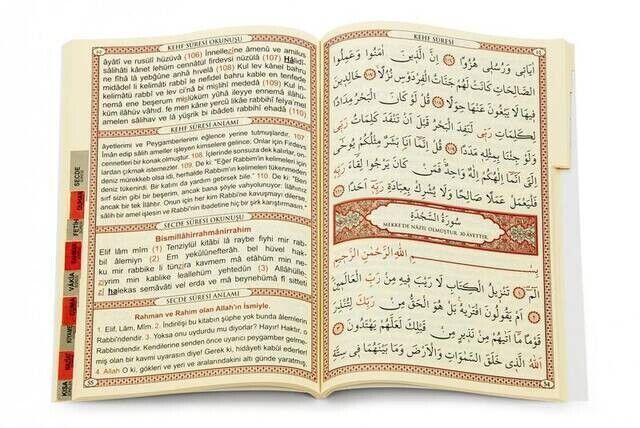 KEHF SÛRESİ OKUNUŞU
âyâtî ve rusulî hüzüvâ (106) İnnellezine âmenû ve amilus
sâlihâti kânet lehüm cennâtül firdevsi nüzülâ (107) Hâlidî-
ne fîhâ lâ yebğûne anhâ hıvelâ (108) Kul lev kânel bahru
midâdel li kelimâti rabbî le nefidel bahru kable en tenfede
kelimâtü rabbî ve lev ci'nâ bi mislihî mededâ (109) Kul in-
nemâ ene beşerum mislüküm yûhâ ileyye ennemâ ilâhü-
küm ilâhüv vâhıd. fe men kâne yercû likâe rabbihî felya'mel
amelen sâlihav ve lâ yüşrik bi ıbâdeti rabbihî ehadâ (110)
KEHF SÛRESİ ANLAMI
âyetlerimi ve Peygamberlerimi eğlence yerine tutmuşlardır. 107.
İman edip sâlih ameller işleyen kimselere gelince: Onlar için Firdevs
cennetleri bir konak olmuştur. 108. İçlerinde sonsuza dek kalırlar, on-
lardan çıkmak istemezler. 109. De ki: "Eğer Rabbim'in kelimeleri için
deniz mürekkeb olsa idi, herhalde Rabbim'in kelimeleri tükenmeden
deniz tükenirdi. Bir katını da yardım getirsek bile." 110. De ki: "Ben
sırf sizin gibi bir beşerim, ancak bana şöyle vahyolunuyor: İlâhınız
ancak bir tek İlâhtır. Onun için her kim Rabbi'ne kavuşmayı dilerse,
sâlih bir amel işlesin ve Rabbi'nin ibadetine hiç bir şirk karıştırmasın."
SECDE SÛRESİ OKUNUŞU
Bismillâhirrahmânirrahim
Elif lâm mîm (1) Tenzîylül kitâbi lâ raybe fîyhi mir rab-
bil âlemiyn (2) Em yekûlûnefterâh. bel hüvel hak-
ku mir rabbike li tünzira kavmem mâ etâhüm min ne-
zîyrim min kablike leallehüm yehtedûn (3) Allâhülle-
zî halekas semâvâti vel erda ve mâ beynehümâ fî sitteti
SECDE SÛRESİ ANLAMI
Rahman ve Rahim olan Allah'ın İsmiyle.
1. Elif, Lâm, Mîm. 2. İndirilişi bu kitabın şüphe yok bunda âlemlerin
Rabbi'ndendir. 3. Yoksa onu uydurdu mu diyorlar? Hayır! Haktır, o
Rabbi'ndendir. Kendilerine senden önce uyarıcı peygamber gelme-
miş olan bir kavmi uyarasın diye! Gerek ki, hidâyeti kabul ederler!
4. Allah O ki, gökleri ve yeri ve aralarındakini altı günde yaratmış,
55
SECDE
DUHAN
FETH
VÂKIA
KISA
KEHF SÛRESİ
اٰيَاتٖى وَرُسُلٖى هُزُوًا ﴿١٠٦﴾ اِنَّ الَّذٖينَ اٰمَنُوا وَعَمِلُوا
الصَّالِحَاتِ كَانَتْ لَهُمْ جَنَّاتُ الْفِرْدَوْسِ نُزُلًا ﴿١٠٧﴾ خَالِدٖينَ
فٖيهَا لَا يَبْغُونَ عَنْهَا حِوَلًا ﴿١٠٨﴾ قُلْ لَوْ كَانَ الْبَحْرُ مِدَادًا
لِكَلِمَاتِ رَبّٖى لَنَفِدَ الْبَحْرُ قَبْلَ اَنْ تَنْفَدَ كَلِمَاتُ رَبّٖى
وَلَوْ جِئْنَا بِمِثْلِهٖ مَدَدًا ﴿١٠٩﴾ قُلْ اِنَّمَا اَنَا بَشَرٌ مِثْلُكُمْ يُوحٰى
اِلَىَّ اَنَّمَا اِلٰهُكُمْ اِلٰهٌ وَاحِدٌ فَمَنْ كَانَ يَرْجُوا لِقَاءَ رَبِّهٖ
فَلْيَعْمَلْ عَمَلًا صَالِحًا وَلَا يُشْرِكْ بِعِبَادَةِ رَبِّهٖ اَحَدًا ﴿١١٠﴾
سُورَةُ السَّجْدَةِ
MEKKE'DE NÂZİL OLMUŞTUR. 30 ÂYETTİR.
بِسْمِ اللّٰهِ الرَّحْمٰنِ الرَّحٖيمِ
الٓمٓ ﴿١﴾ تَنْزٖيلُ الْكِتَابِ لَا رَيْبَ فٖيهِ مِنْ رَبِّ الْعَالَمٖينَ ﴿٢﴾
اَمْ يَقُولُونَ افْتَرٰيهُ بَلْ هُوَ الْحَقُّ مِنْ رَبِّكَ لِتُنْذِرَ
قَوْمًا مَا اَتٰيهُمْ مِنْ نَذٖيرٍ مِنْ قَبْلِكَ لَعَلَّهُمْ يَهْتَدُونَ ﴿٣﴾
اَللّٰهُ الَّذٖى خَلَقَ السَّمٰوَاتِ وَالْاَرْضَ وَمَا بَيْنَهُمَا فٖى سِتَّةِ
54